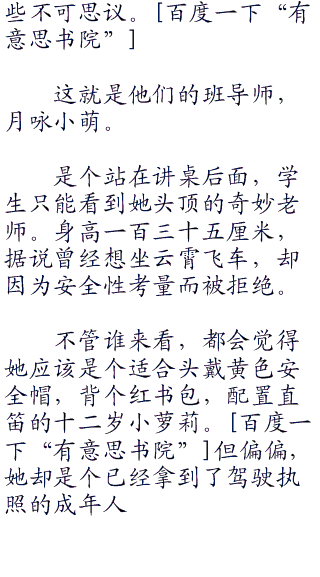 些不可思议。[百度一下“有
意思书院”]
这就是他们的班导师，
月咏小萌。
是个站在讲桌后面，学
生只能看到她头顶的奇妙老
师。身高一百三十五厘米，
据说曾经想坐云霄飞车，却
因为安全性考量而被拒绝。
不管谁来看，都会觉得
她应该是个适合头戴黄色安
全帽，背个红书包，配置直
笛的十二岁小萝莉。[百度一
下“有意思书院”]但偏偏，
她却是个已经拿到了驾驶执
照的成年人